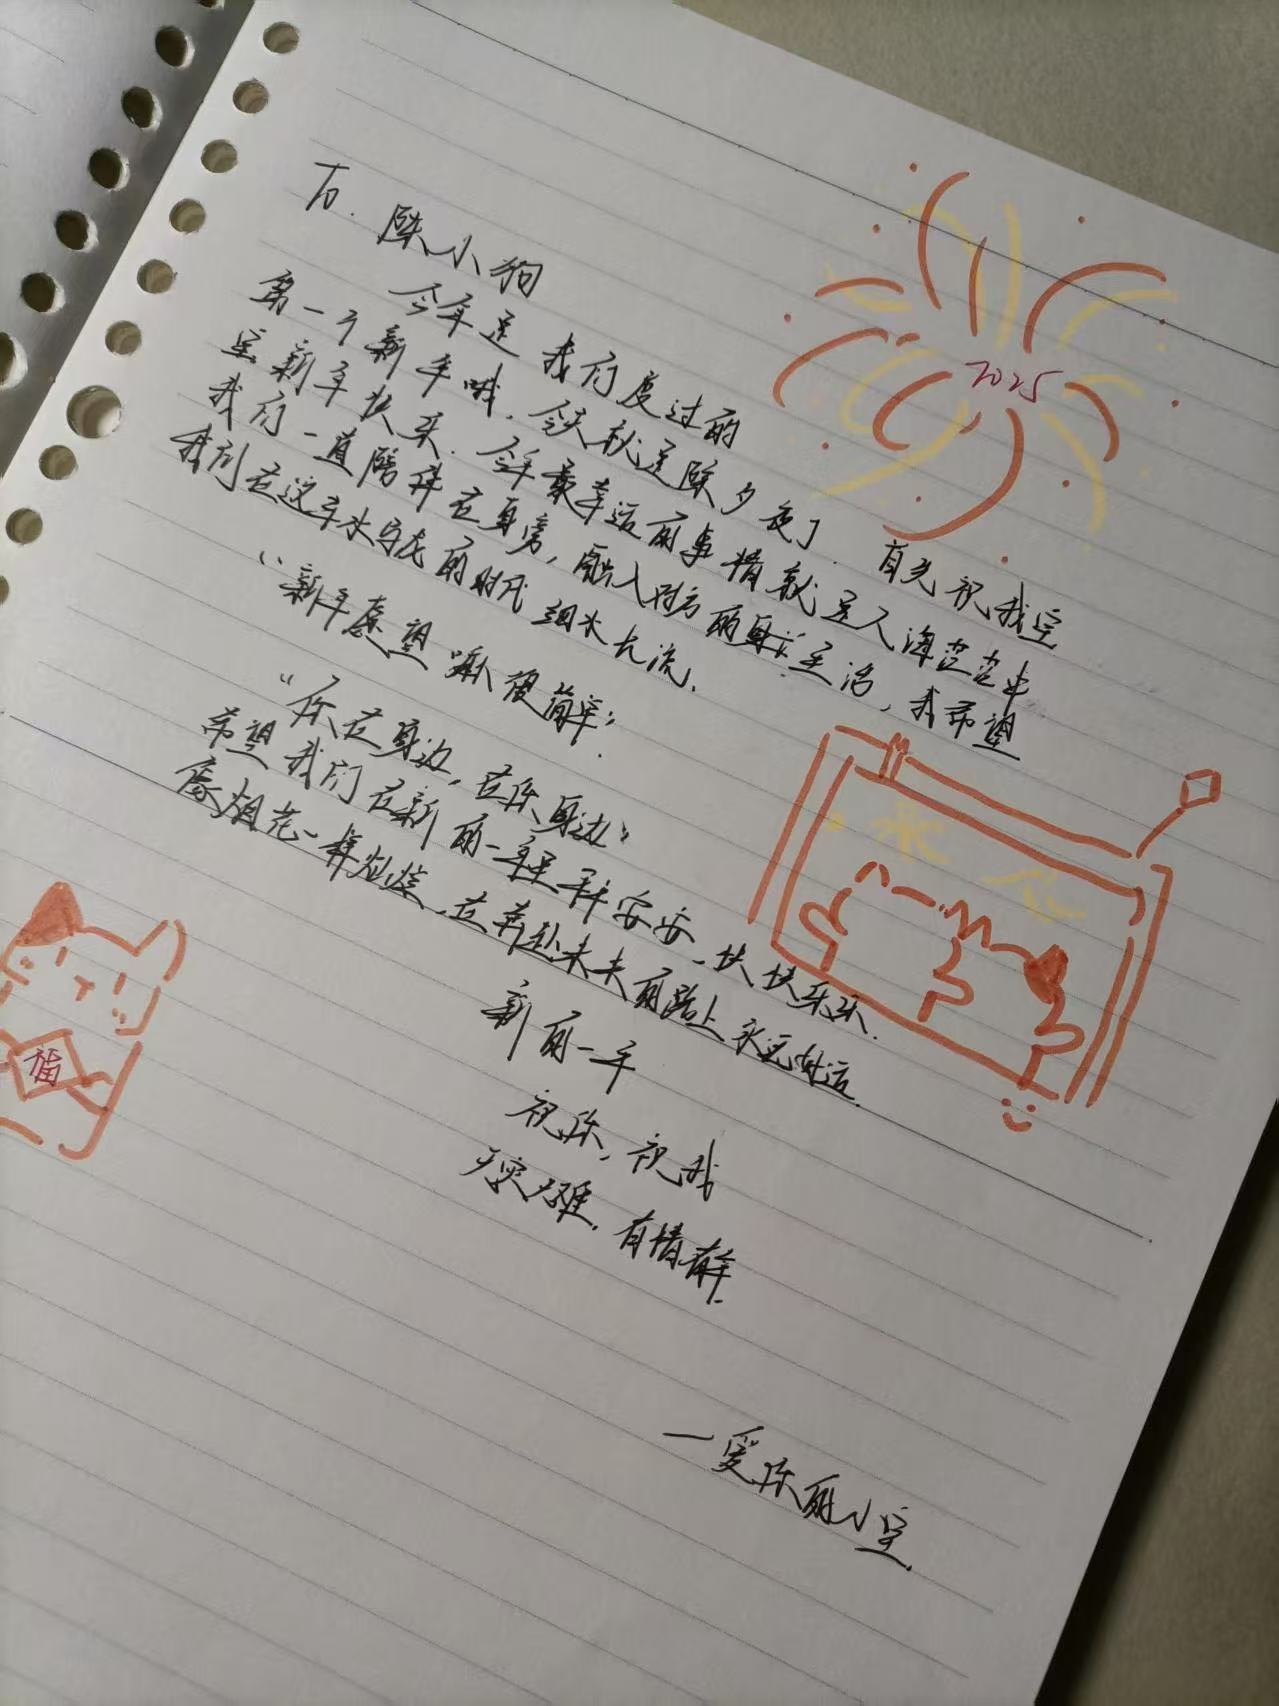 To. 陈小狗
2025
今年是我们度过的
第一个新年哦.今天就是除夕夜了.首先祝我宝
宝新年快乐.今年最幸运的事情就是人海茫茫中
我们一直陪伴在身旁,融入对方的身心生活,我希望
我们在这车水马龙的时代细水长流.
“新年愿望”嘛很简单:
“你在身边,在你身边”
希望我们在新的一年里平平安安,快快乐乐.
像烟花一样灿烂,在奔赴未来的路上永远好运.
福
新的一年
祝你,祝我
无灾无难,有情有年.
—爱你的小宝.